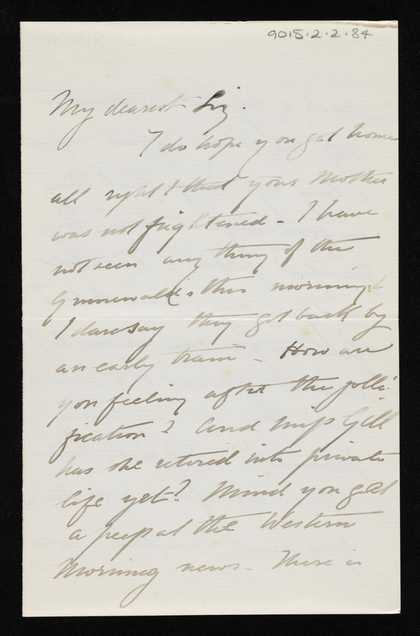 9015.2.2.84
My dearest Liz.
I do hope you got home
all right & that your Mother
was not frightened - I have
not seen any thing of the
Grunewalds this morning &
I dare say they got back by
an early train - How are
you feeling after the jolli
fication? And Miss Gill
has she retired into private
life yet? Mind you get
a peep at the Western
Morning news - There is